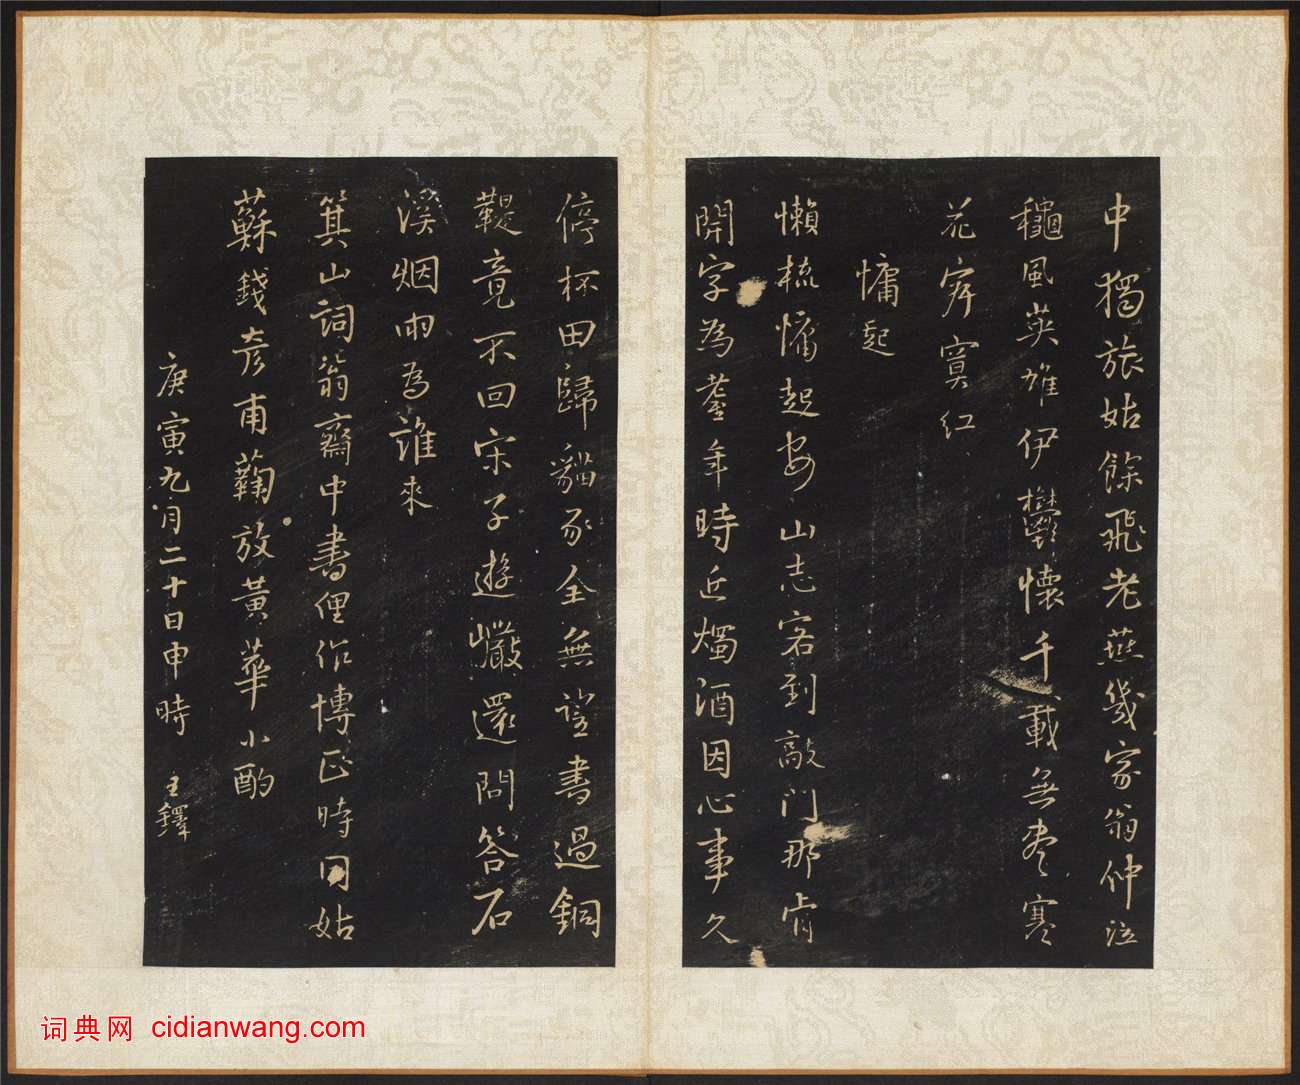 中獨旅姑餘飛老燕幾家翁仲泣
龝風英雄伊鬱懷千載無盡寒
花寂寞紅
慵起
懶梳慵起安山志客到敲門那肯
開字為耋年時近燭酒因心事久
停杯田歸貓豕全無望書過銅
鞮竟不回宋子遊巖還問答石
溪烟雨為誰來
箕山詞翁齋中書俚作博正時同姑
蘇錢彥甫鞠放黃華小酌
庚寅九月二十日申時 王鐸
词典网 cidianwang.com